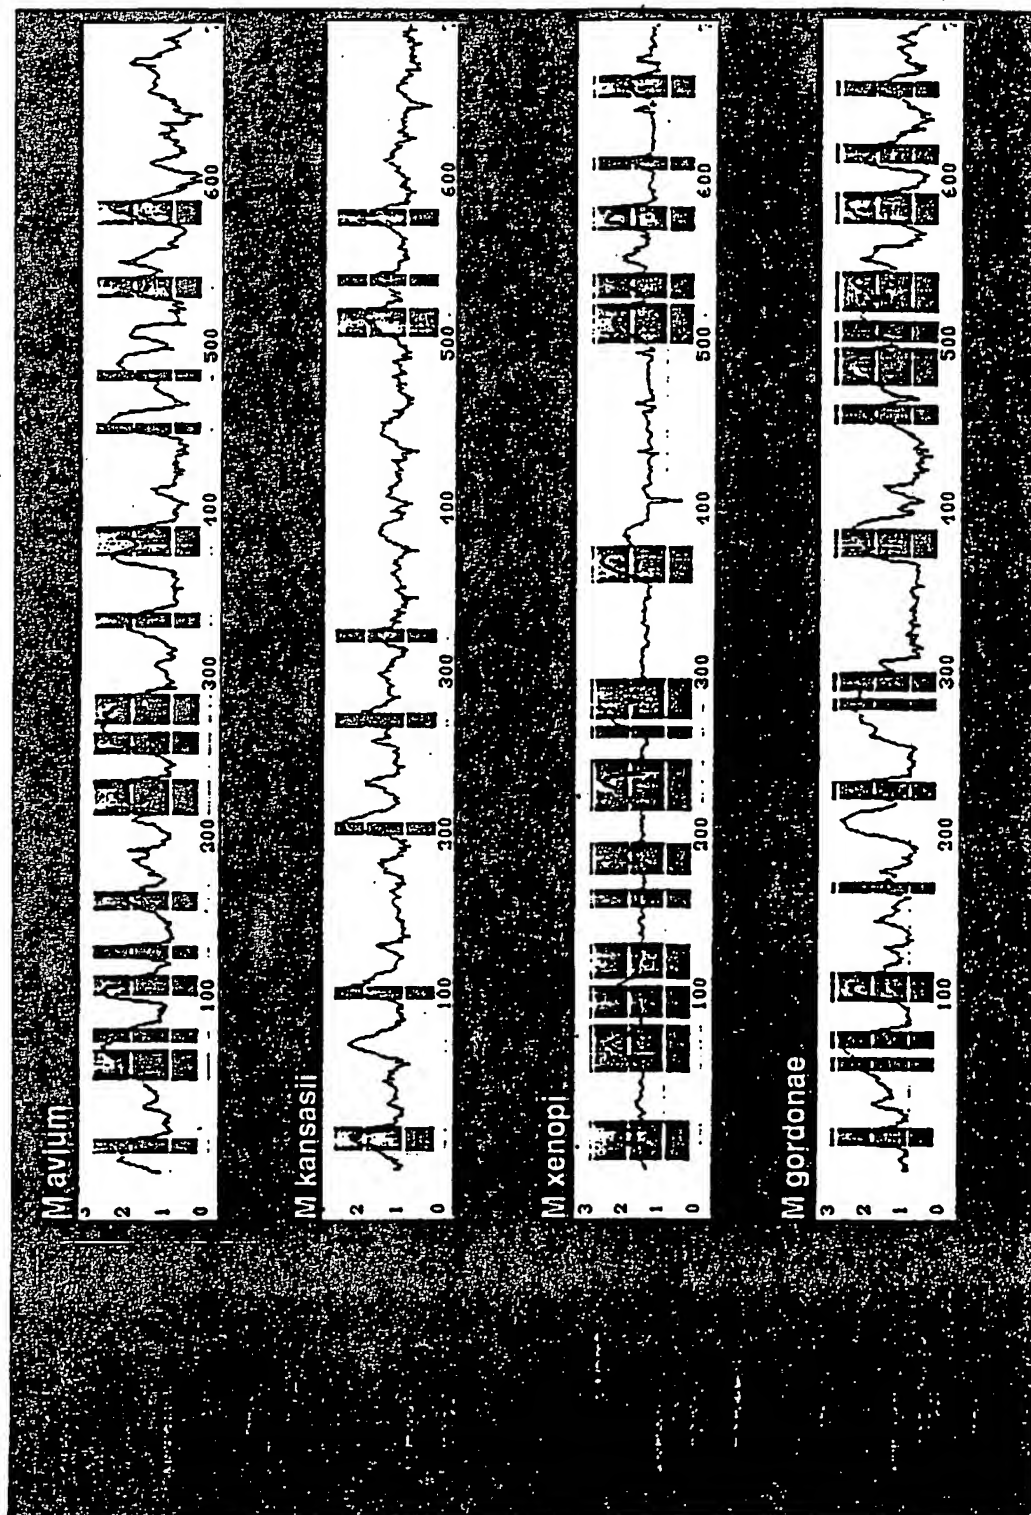 M avium
3
2
1
0
100
200
300
400
500
600
M kansasii
2
1
0
100
200
300
400
500
600
M xenopi
3
2
1
0
100
200
300
400
500
600
M gordonae
3
2
1
0
100
200
300
400
500
600